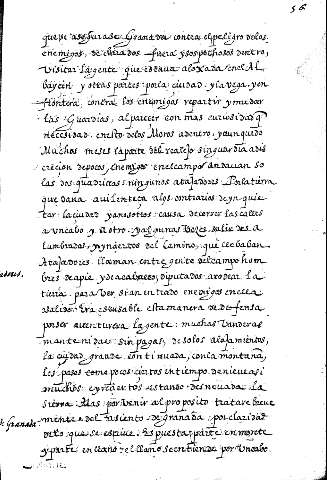 56
que se asegurase Granada contra el peligro de los
enemigos, declarados fuera y sospechosos dentro,
visitar la gente que estava aloxada en el Al
bayçin y otras partes por la ciudad y la vega, y en
frontera, contra los enemigos repartir y mudar
las Guardias, al parecer con mas curiosidad q
necesidad.
Muchos meses la parte del realejo sin guardia a dis
creçion de pocos, enemigos en el campo andavan so
las dos quadrillas: ningunos atajadores Por la tierra
que dava avilenteça a los contrarios de ynquie
tar la ciudad y a nosotros causa de correr las calles
a un cabo y al otro, y algunas vezes salir des a
lumbrados, ynçiertos del camino, que llevaban
Atajadores llaman entre gente del campo hom
bres de a pie y de a cavallo, diputados a rodear la
tierra para ver si an entrado enemigos en ella
o salido. Era escusable esta manera de defensa
por ser aventurera la gente: muchas vanderas
mantenidas sin pagas, de solos alojamientos,
la ciudad grande continuada, con la montaña,
los pasos como pocos ciertos en tiempo de nieve asi
muchos y inciertos estando desnevada la
sierra. Mas por venir al proposito tratare breve
mente del asiento de Granada por claridad
de lo que se escrive. Es puesta parte en monte
y parte en llano. el llano se entiende por un cabo
Granada